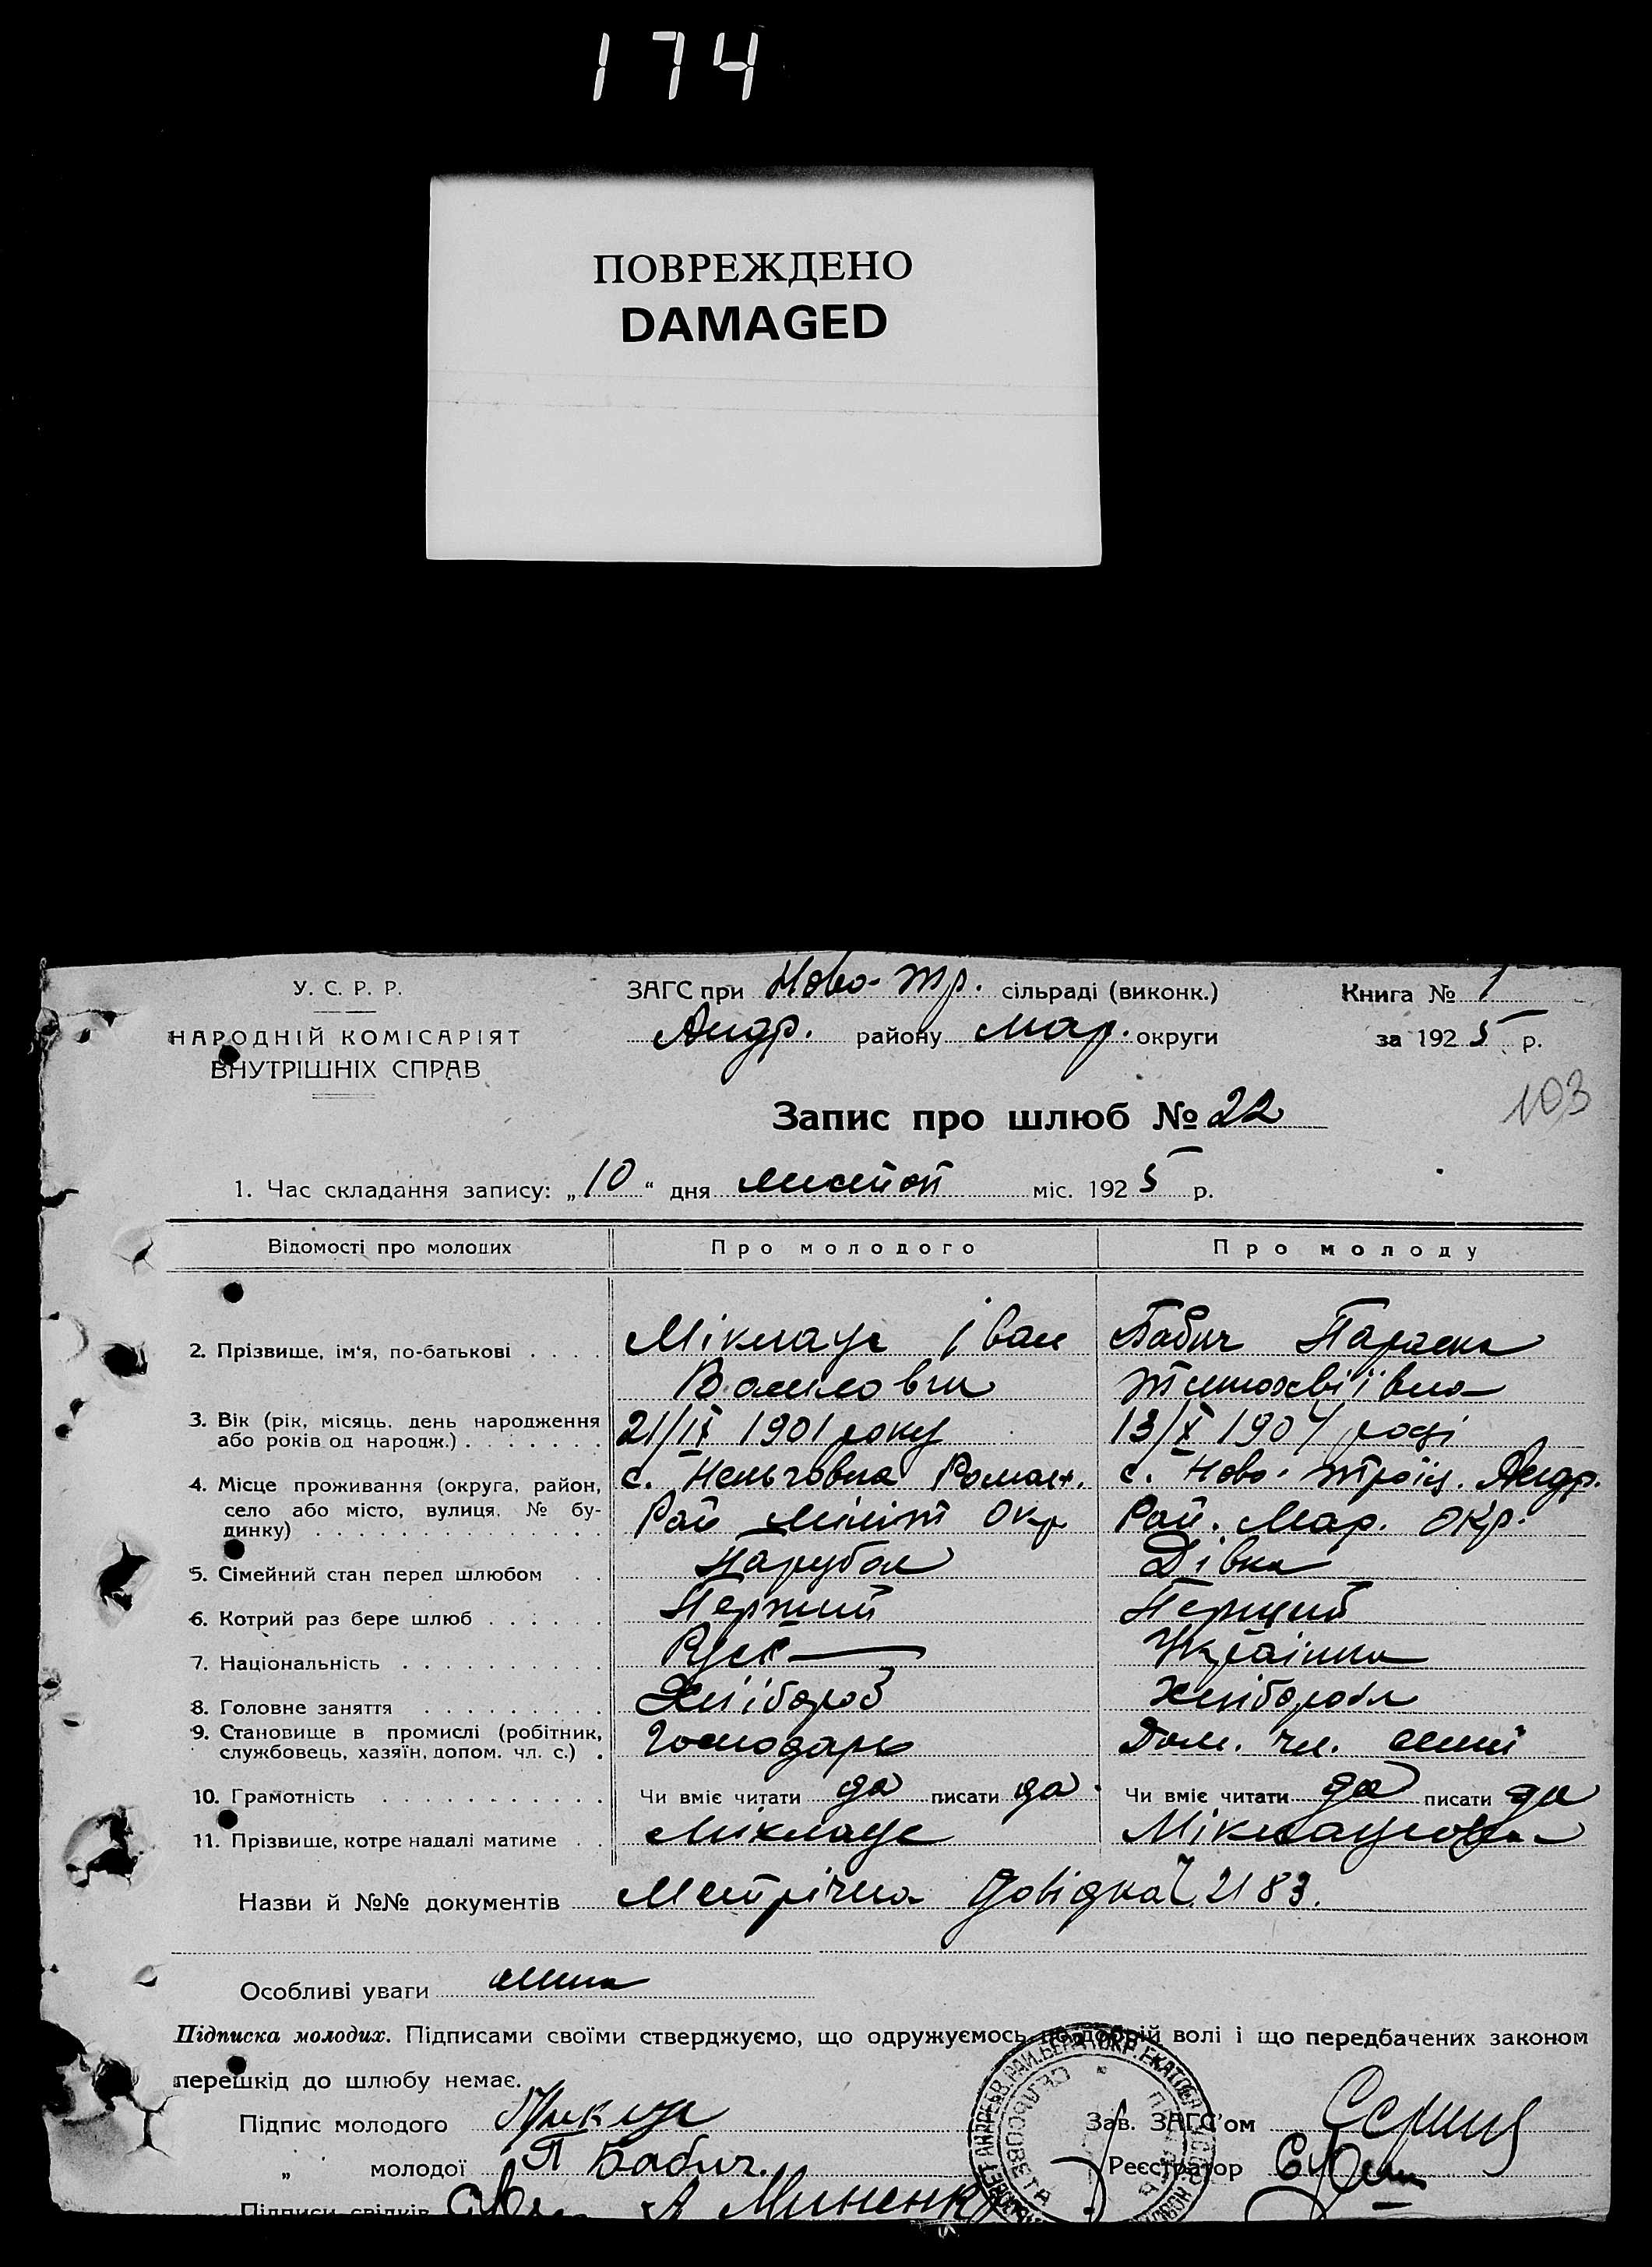 174
ПОВРЕЖДЕНО
DAMAGED
У. С. Р. Р.
НАРОДНІЙ КОМІСАРІЯТ
ВНУТРІШНІХ СПРАВ
ЗАГС при Ново-Тр. сільраді (виконк.)
Андр. району Мар. округи
Книга № 1
за 1925 р.
103
Запис про шлюб № 22
1. Час складання запису: „10“ дня листоп міс. 1925 р.
Відомості про молодих Про молодого Про молоду
2. Прізвище, ім'я, по-батькові . . . .Міклаус Іван Бабич Параска
Василович Тимохвіівна
3. Вік (рік, місяць, день народження 21/IX 1901 року 13/X 1904 році
або років од народж.) . . . . . . .
4. Місце проживання (округа, район, с. Роман. с. Ново-Троїц. Андр.
село або місто, вулиця, № бу- Рай Окр Рай. Мар. Окр.
динку) . . . . . . . . . . . . . .
5. Сімейний стан перед шлюбом . . Парубок Дівка
6. Котрий раз бере шлюб . . . . . . Перший Перший
7. Національність . . . . . . . . . . Руск Українка
8. Головне заняття . . . . . . . . . Хлібороб Хлібороб
9. Становище в промислі (робітник, Господарь Дом. чл. семї
службовець, хазяїн, допом. чл. с.) .
10. Грамотність . . . . . . . . . . . Чи вміє читати да писати да Чи вміє читати да писати да
11. Прізвище, котре надалі матиме . . Міклаус Міклаусова
Назви й №№ документів Метрічна довідка 2183.
Особливі уваги
Підписка молодих. Підписами своїми стверджуємо, що одружуємось по добрій волі і що передбачених законом
перешкід до шлюбу немає.
Підпис молодого Зав. ЗАГС'ом
„ молодої П Бабич. Реєстратор
Підписи свідків А Миненко